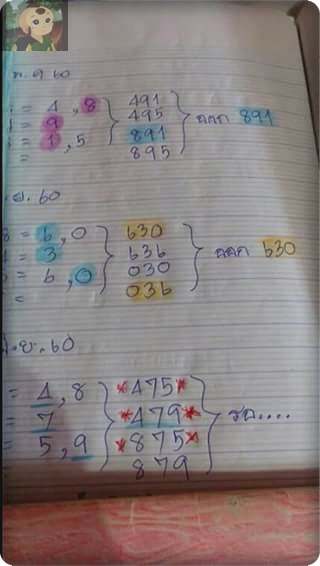 ต.ค 60
= 4, 8
= 9
= 1, 5
=
491
495
891
895
ออก 891
ย. 60
= 6, 0
= 3
= 6, 0
=
630
636
030
036
ออก 630
.ย. 60
= 4, 8
= 7
= 5, 9
*475*
*479*
*875*
879
รอ....